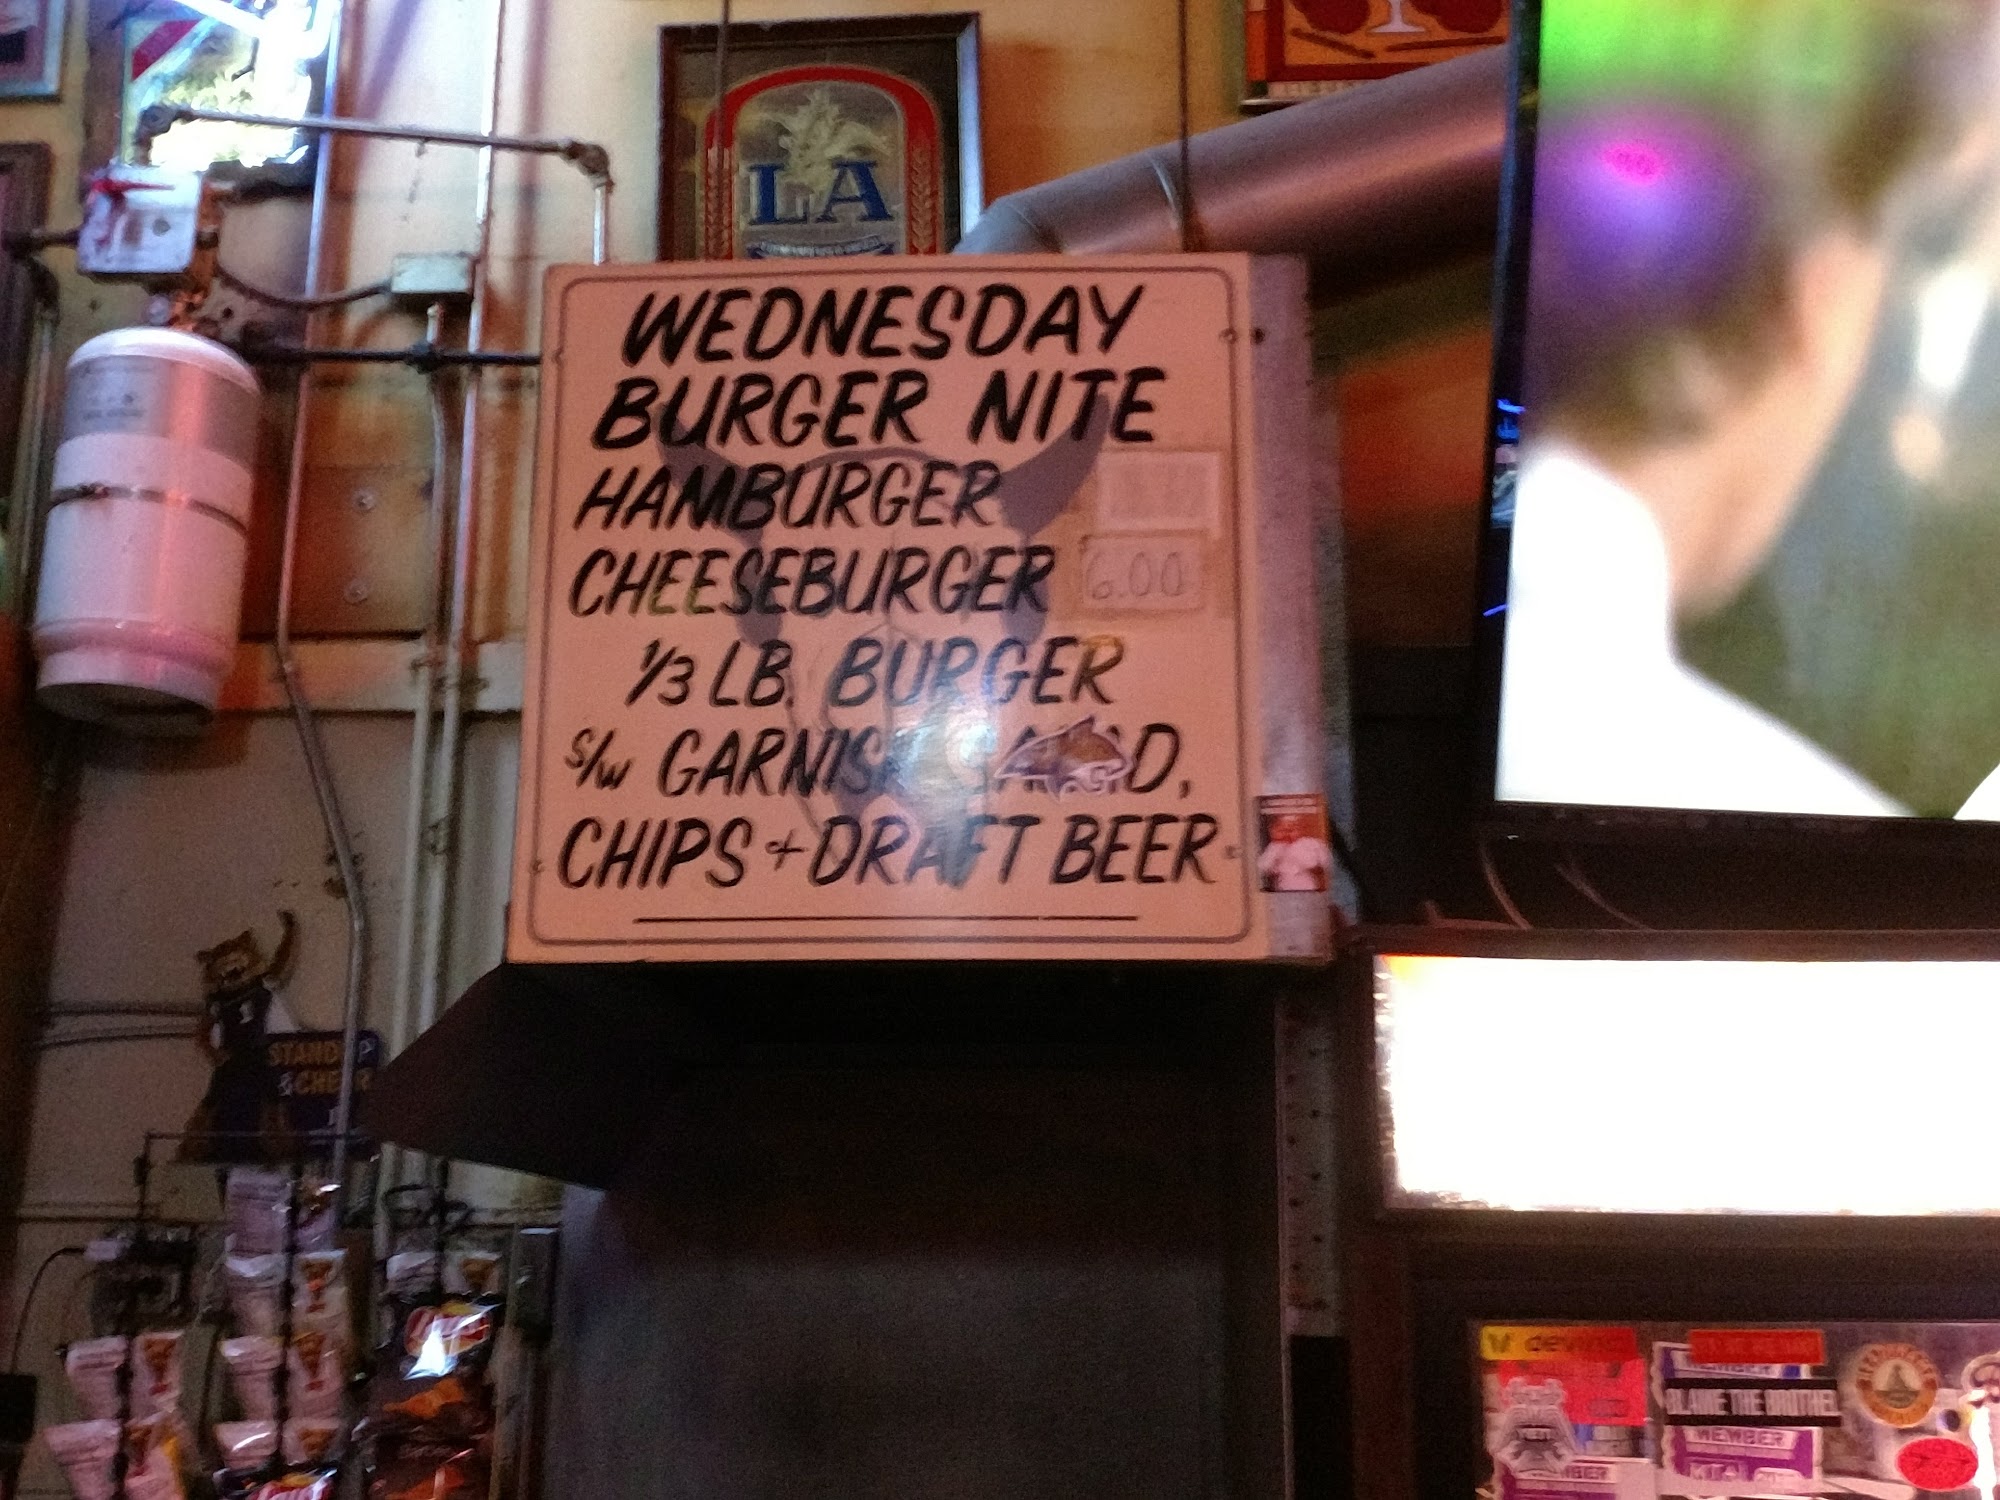 LA
WEDNESDAY
BURGER NITE
HAMBURGER
CHEESEBURGER 6.00
1/3 LB. BURGER
S/W GARNISH
CHIPS + DRAFT BEER
STAND UP
& CHEER
BLAME THE BROTHEL
MEMBER